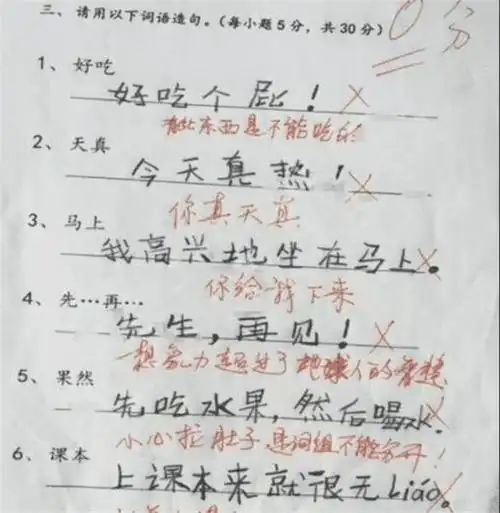 三、请用以下词语造句。(每小题5分，共30分)
0分
1、好吃
好吃个屁！
有些东西是不能吃的
2、天真
今天真热！
你真天真
3、马上
我高兴地坐在马上。
你给我下来
4、先…再…
先生，再见！
想象力超过了地球人的智慧
5、果然
先吃水果，然后喝水.
小心拉肚子 是词组不能分开！
6、课本
上课本来就很无Liáo。